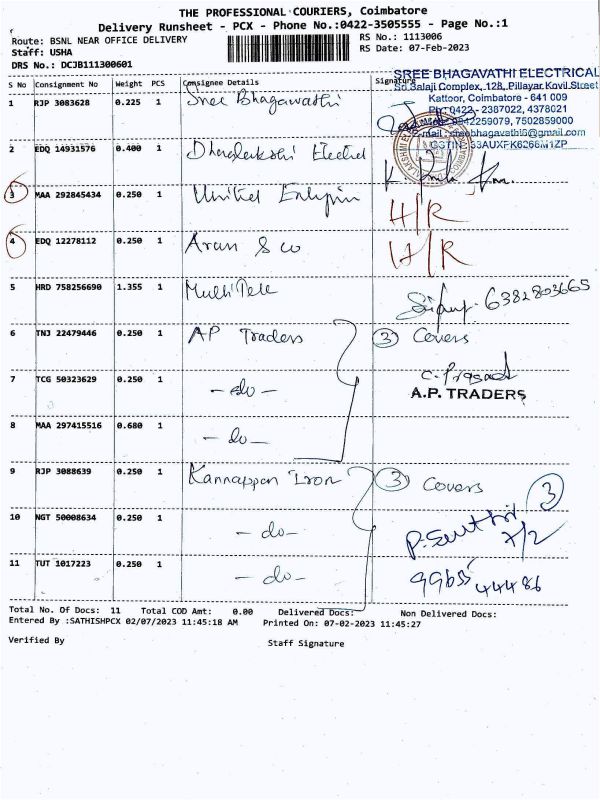 THE PROFESSIONAL COURIERS, Coimbatore
Delivery Runsheet - PCX - Phone No.:0422-3505555 - Page No.:1
Route: BSNL NEAR OFFICE DELIVERY
RS No.: 1113006
Staff: USHA
RS Date: 07-Feb-2023
DRS No.: DCJB111300601
SREE BHAGAVATHI ELECTRICAL
Sri Balaji Complex, 128, Pillayar Kovil Street
Kattoor, Coimbatore - 641 009
0422 - 2387022, 4378021
9842259079, 7502859000
S No Consignment No Weight PCS Consignee Details Signature
1 RJP 3083628 0.225 1 Sree Bhagawathi
2 EDQ 14931576 0.400 1
3 MAA 292845434 0.250 1 United H/R
4 EDQ 12278112 0.250 1 Arun & co H/R
5 HRD 758256690 1.355 1 Multi Tele 6382803665
6 TNJ 22479446 0.250 1 AP Traders 3 Covers
7 TCG 50323629 0.250 1 -do- C. Prasad
A.P. TRADERS
8 MAA 297415516 0.680 1 -do-
9 RJP 3088639 0.250 1 Kannappan Iron 3 Covers 3
10 NGT 50008634 0.250 1 -do- P. Senthil 7/2
11 TUT 1017223 0.250 1 -do- 99655 44486
Total No. Of Docs: 11 Total COD Amt: 0.00 Delivered Docs: Non Delivered Docs:
Entered By :SATHISHPCX 02/07/2023 11:45:18 AM Printed On: 07-02-2023 11:45:27
Verified By Staff Signature